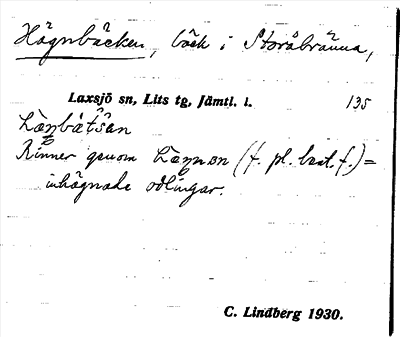 Högnbäcken, bäck i Storåbränna,
Laxsjö sn, Lits tg, Jämtl. l. 135
Rinner genom (f. pl. best. f.) =
inhägnade odlingar.
C. Lindberg 1930.